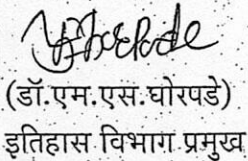 (डॉ.एम.एस.घोरपडे)
इतिहास विभाग प्रमुख